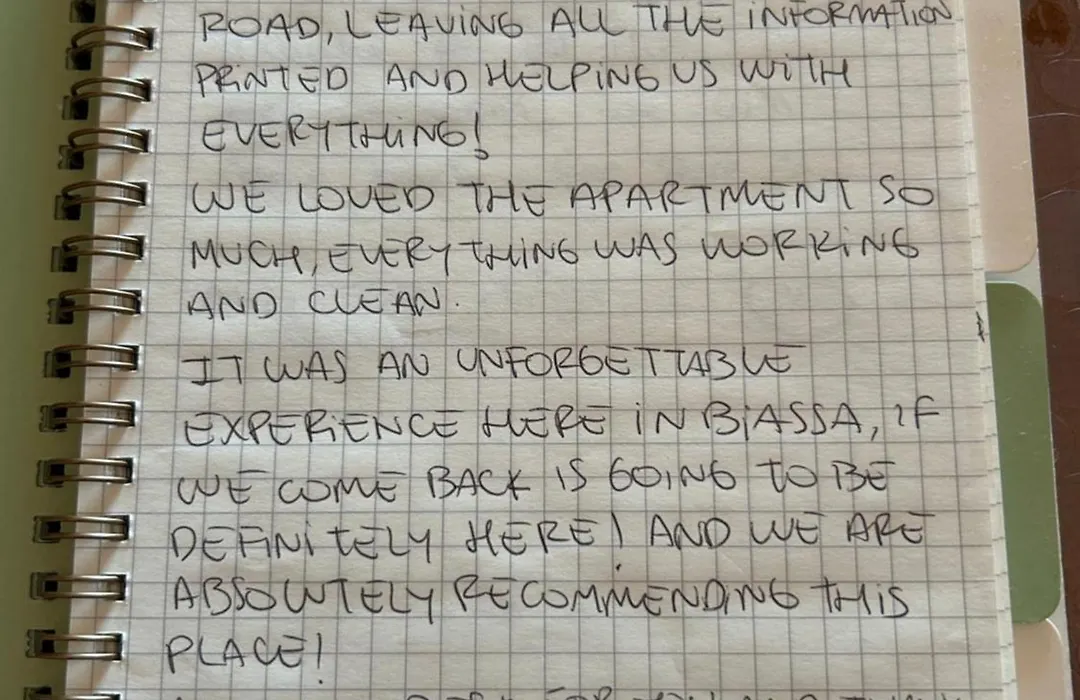 ROAD, LEAVING ALL THE INFORMATION
PRINTED AND HELPING US WITH
EVERYTHING!
WE LOVED THE APARTMENT SO
MUCH, EVERYTHING WAS WORKING
AND CLEAN.
IT WAS AN UNFORGETTABLE
EXPERIENCE HERE IN BIASSA, IF
WE COME BACK IS GOING TO BE
DEFINITELY HERE! AND WE ARE
ABSOLUTELY RECOMMENDING THIS
PLACE!